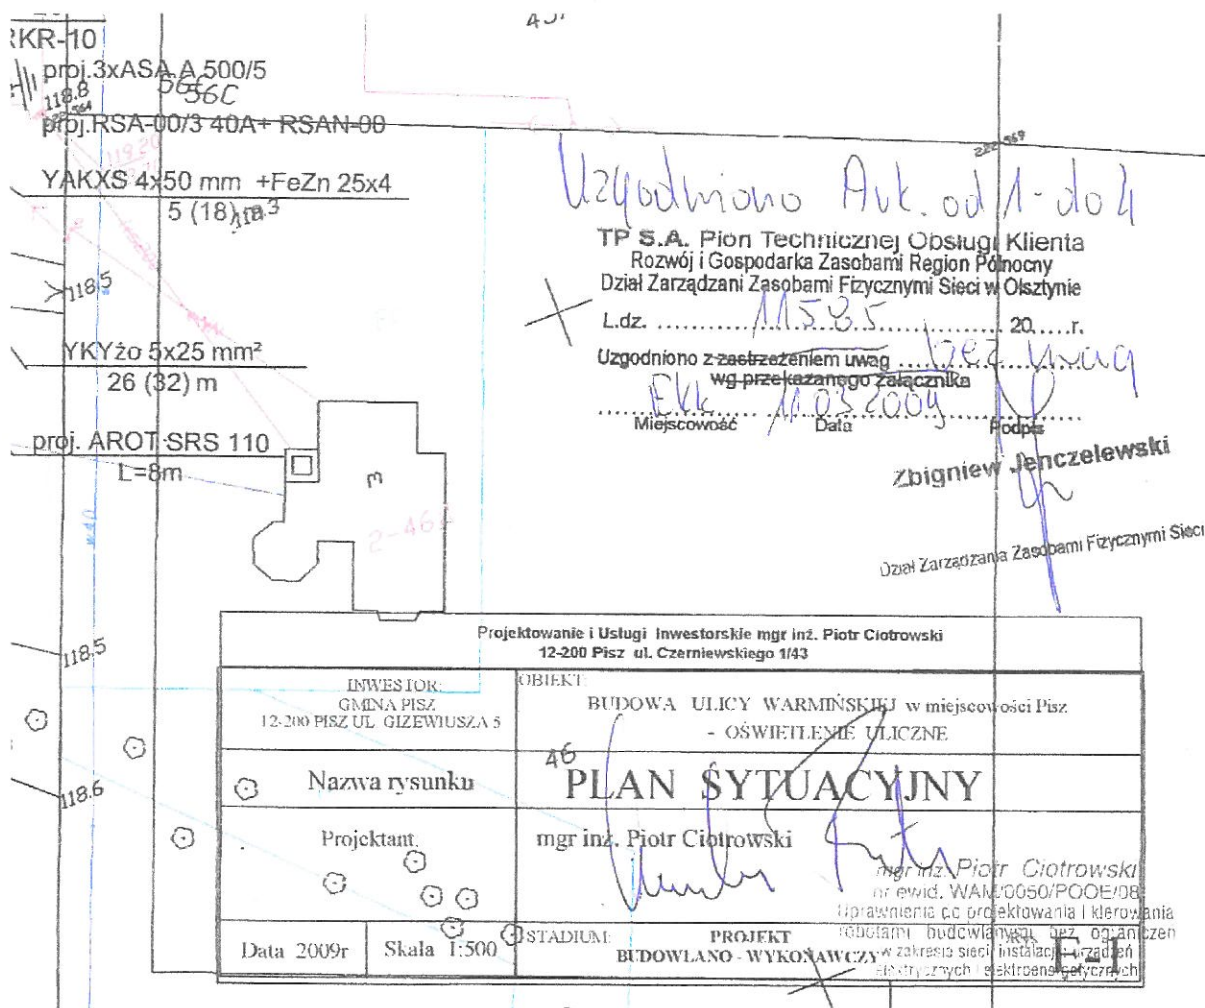 RKR-10
proj.3xASA A 500/5
118.8
56C
56C
222 564
proj.RSA-00/3 40A+ RSAN-00
119.20
222 569
YAKXS 4x50 mm +FeZn 25x4
5 (18) m
118.3
Uzgodniono Ark. od 1-do 4
TP S.A. Pion Technicznej Obsługi Klienta
Rozwój i Gospodarka Zasobami Region Północny
Dział Zarządzani Zasobami Fizycznymi Sieci w Olsztynie
L.dz. 11585 20.....r.
Uzgodniono z zastrzeżeniem uwag bez uwag
wg przekazanego załącznika
Ełk 11.03.2009
Miejscowość Data Podpis
Zbigniew Jenczelewski
Dział Zarządzania Zasobami Fizycznymi Sieci
118.5
YKYżo 5x25 mm²
26 (32) m
proj. AROT SRS 110
L=8m
3
2-46
w40
118.5
118.6
46
Projektowanie i Usługi Inwestorskie mgr inż. Piotr Ciotrowski
12-200 Pisz ul. Czerniewskiego 1/43
INWESTOR:
GMINA PISZ
12-200 PISZ UL GIZEWIUSZA 5
OBIEKT:
BUDOWA ULICY WARMIŃSKIEJ w miejscowości Pisz
- OŚWIETLENIE ULICZNE
Nazwa rysunku
PLAN SYTUACYJNY
Projektant.
mgr inż. Piotr Ciotrowski
mgr inż. Piotr Ciotrowski
nr ewid. WAM/0050/POOE/08
Uprawnienia do projektowania i kierowania
robotami budowlanymi bez ograniczeń
w zakresie sieci, instalacji i urządzeń
elektrycznych i elektroenergetycznych
Data 2009r
Skala 1:500
STADIUM:
PROJEKT
BUDOWLANO - WYKONAWCZY
E-1